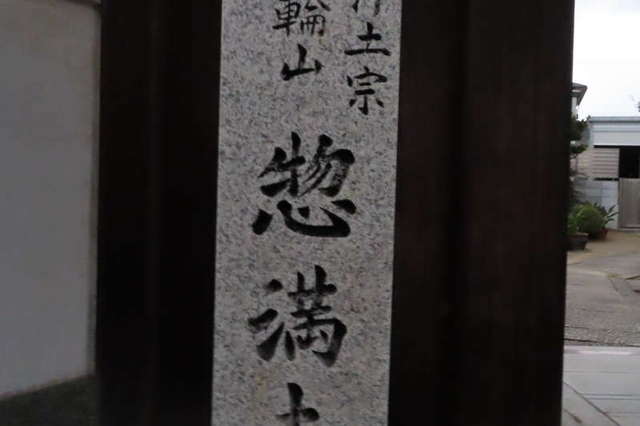 浄土宗
輪山
惣満